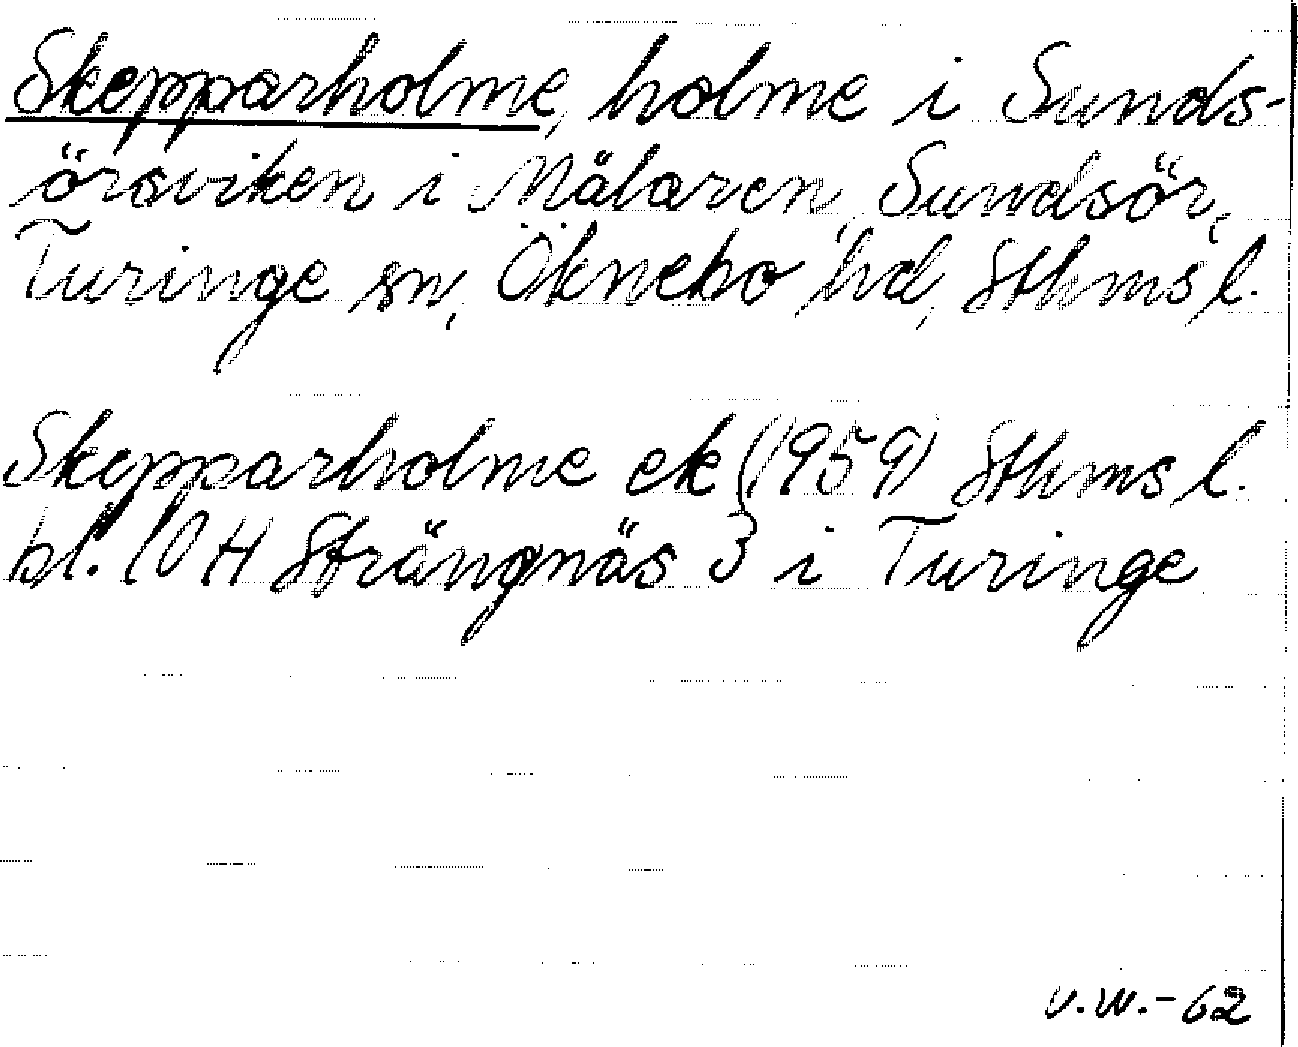 Skepparholme, holme i Sunds-
örsviken i Mälaren, Sundsör,
Turinge sn, Öknebo hd, Sthms l.
Skepparholme ek (1959) Sthms l.
bl. 10 H Strängnäs 3 i Turinge
v.w.-62